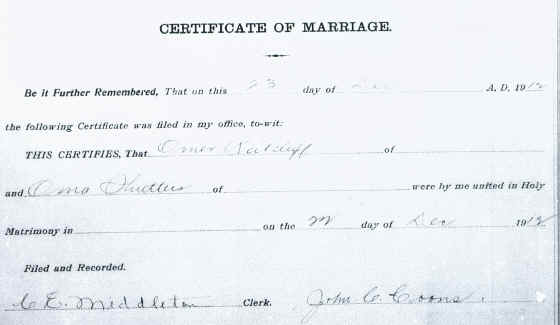 CERTIFICATE OF MARRIAGE.
Be it Further Remembered, That on this 23 day of Dec A. D. 1912
the following Certificate was filed in my office, to-wit:
THIS CERTIFIES, That Omer Ratcliff of
and Oma of were by me united in Holy
Matrimony in on the day of Dec 1912
Filed and Recorded.
C. E. Middleton Clerk. John C. Coons.